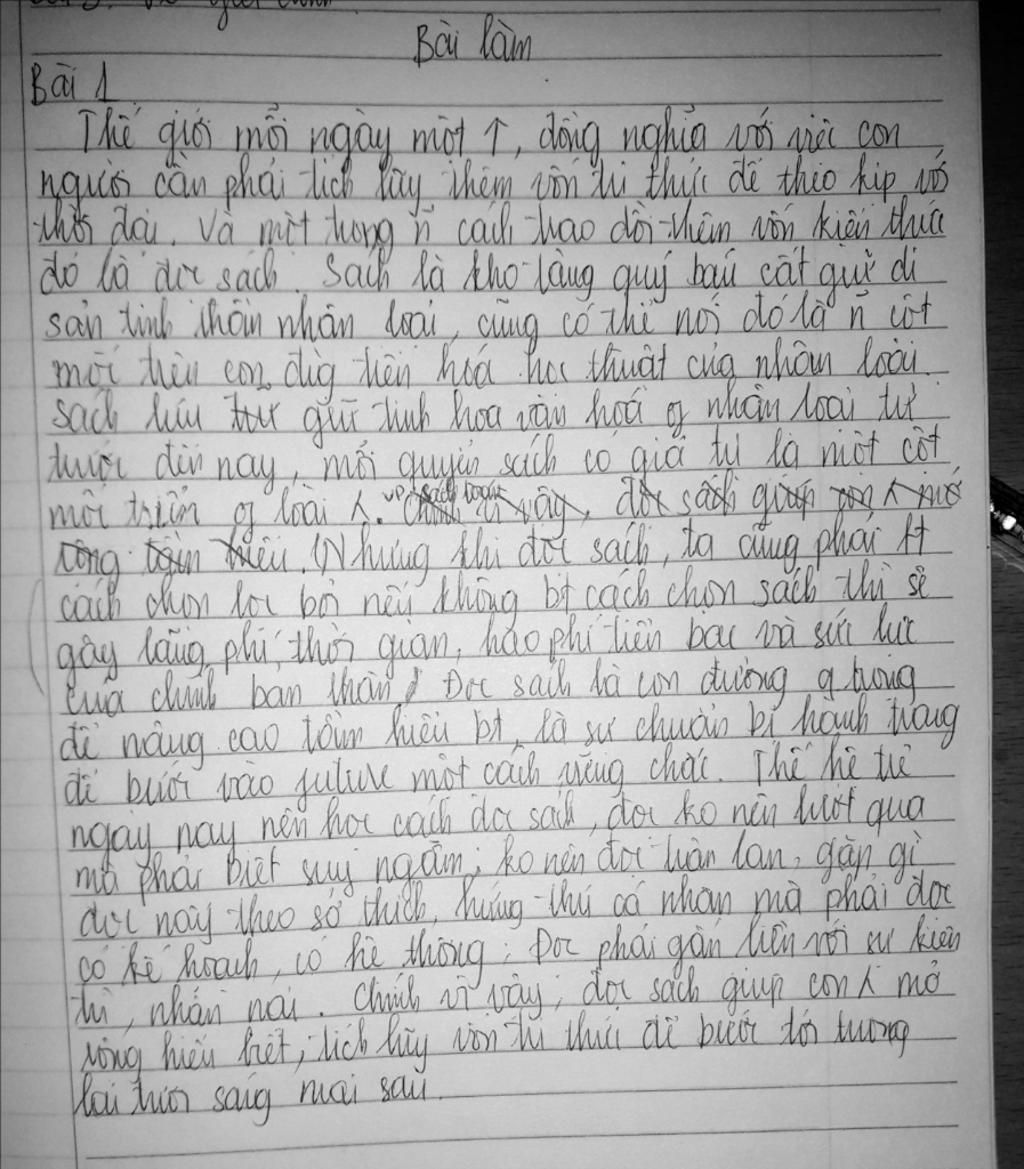 Bài làm
Bài 1
Thế giới mỗi ngày một ↑, đồng nghĩa với việc con
người cần phải tích lũy thêm vốn tri thức để theo kịp với
thời đại. Và một trong ~n cách trao dồi thêm vốn kiến thức
đó là đọc sách. Sách là kho tàng quý báu cất giữ di
sản tinh thần nhân loại, cũng có thể nói đó là ~n cột
mốc trên con đg tiến hoá học thuật của nhân loại.
sách lưu giữ tinh hoa văn hoá of nhân loại từ
trước đến nay, mỗi quyển sách có giá trị là một cột
mốc triển of loài
Nhưng khi đọc sách, ta cũng phải
cách chọn lọc bởi nếu không bt cách chọn sách thì sẽ
gây lãng phí thời gian, hao phí tiền bạc và sức lực
của chính bản thân. Đọc sách là con đường q trọng
để nâng cao tầm hiểu bt, là sự chuẩn bị hành trang
để bước vào future một cách vững chắc. Thế hệ trẻ
ngày nay nên học cách đọc sách, đọc ko nên lướt qua
mà phải biết suy ngẫm; ko nên đọc tràn lan, gặp gì
đọc nấy theo sở thích, hứng thú cá nhân mà phải đọc
có kế hoạch, có hệ thống; Đọc phải gắn liền với sự kiên
trì, nhẫn nại. Chính vì vậy, đọc sách giúp con mở
rộng hiểu biết, tích lũy vốn tri thức để bước tới tương
lai tươi sáng mai sau.